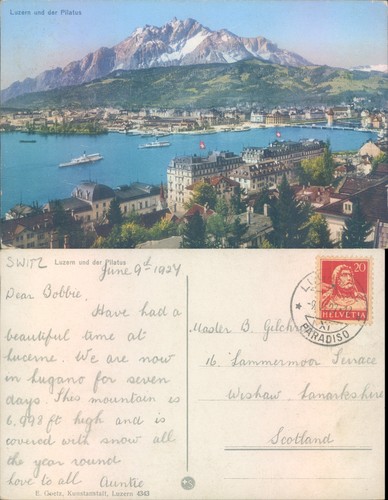 Luzern und der Pilatus
SWITZ
Luzern und der Pilatus
June 9th 1924
Dear Bobbie.
Have had a
beautiful time at
lucerne. We are now
in Lugano for seven
days. This mountain is
6,998 ft high and is
covered with snow all
the year round
love to all Auntie
E. Goetz, Kunstanstalt, Luzern
20
HELVETIA
PARADISO
Master B. Gilchrist
16 Lammermoor Terrace
Wishaw Lanarkshire
Scotland